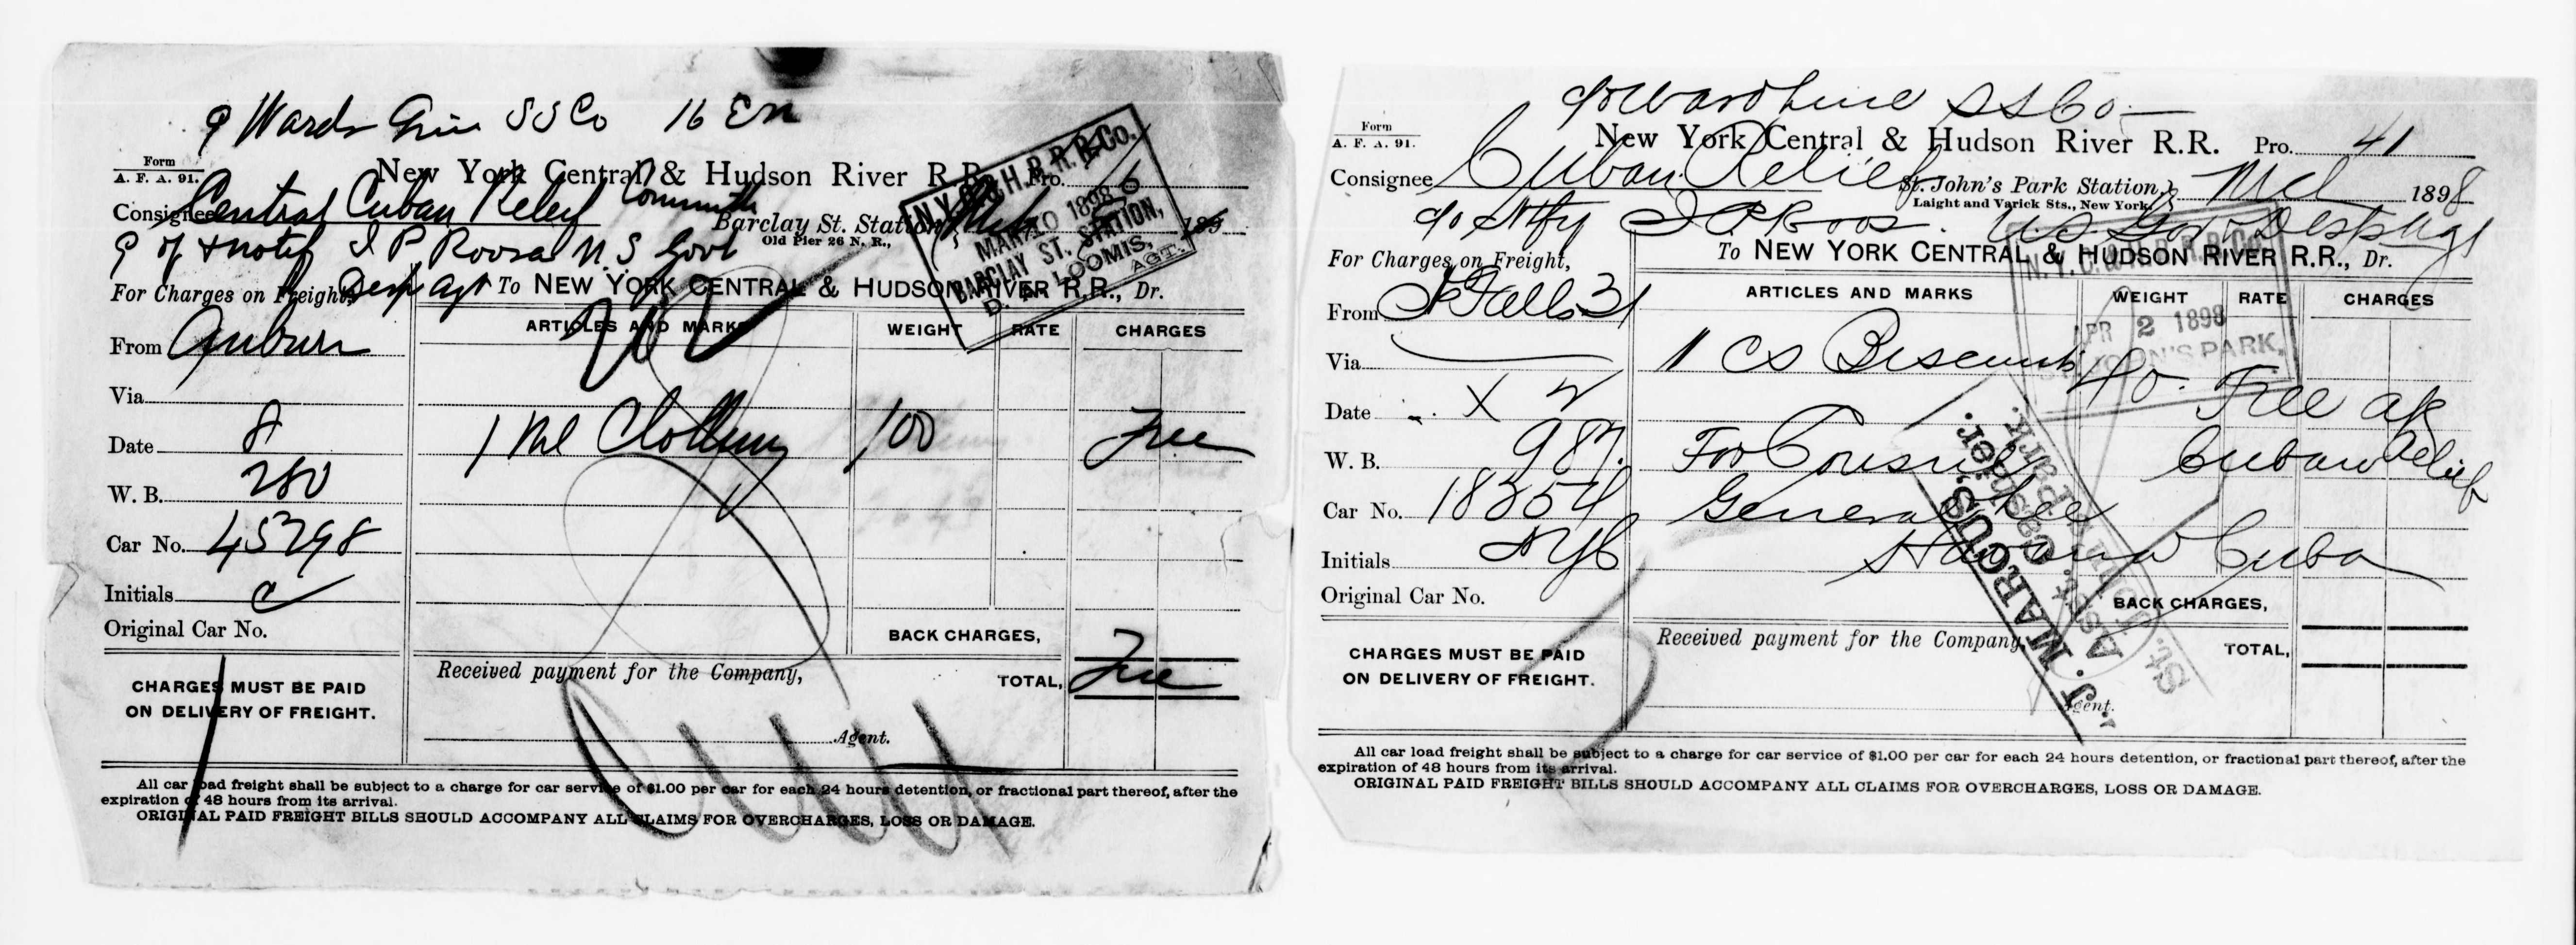 Wards Line SS Co 16 En
Form
A. F. A. 91.
New York Central & Hudson River R.R. Pro.
Consignee Central Cuban Relief Committee
Barclay St. Station,
Old Pier 26 N. R.,
189
N.Y.C. & H.R.R.R. Co.
MAR 1898
BARCLAY ST. STATION,
D. A. LOOMIS,
AGT.
notify I P Roosa U S Govt
Desp Agt
For Charges on Freight, To NEW YORK CENTRAL & HUDSON RIVER R.R., Dr.
ARTICLES AND MARKS WEIGHT RATE CHARGES
From Auburn
Via
Date 8
1 Clothing 100 Free
W. B. 280
Car No. 45298
Initials C
Original Car No.
BACK CHARGES,
CHARGES MUST BE PAID
ON DELIVERY OF FREIGHT.
Received payment for the Company,
TOTAL, Free
Agent.
All car load freight shall be subject to a charge for car service of $1.00 per car for each 24 hours detention, or fractional part thereof, after the
expiration of 48 hours from its arrival.
ORIGINAL PAID FREIGHT BILLS SHOULD ACCOMPANY ALL CLAIMS FOR OVERCHARGES, LOSS OR DAMAGE.
c/o Ward Line SS Co
Form
A. F. A. 91.
New York Central & Hudson River R.R. Pro. 41
Consignee Cuban Relief
St. John's Park Station,
Laight and Varick Sts., New York.
Mch 1898
c/o Ntfy I P Roos. US Gov Desp Agt
For Charges on Freight, To NEW YORK CENTRAL & HUDSON RIVER R.R., Dr.
N.Y.C. & H.R.R.R. Co.
APR 2 1898
ST. JOHN'S PARK.
ARTICLES AND MARKS WEIGHT RATE CHARGES
From Falls 31
Via
1 cs Biscuits 40. Free a/c
Date X
Cuban Relief
W. B. 987.
For Consul
Car No. 18354
General Lee
Initials NYC
Havana Cuba
Original Car No.
J. MAROUS,
Ass't Cashier.
St. John's Park.
BACK CHARGES,
CHARGES MUST BE PAID
ON DELIVERY OF FREIGHT.
Received payment for the Company,
TOTAL,
Agent.
All car load freight shall be subject to a charge for car service of $1.00 per car for each 24 hours detention, or fractional part thereof, after the
expiration of 48 hours from its arrival.
ORIGINAL PAID FREIGHT BILLS SHOULD ACCOMPANY ALL CLAIMS FOR OVERCHARGES, LOSS OR DAMAGE.